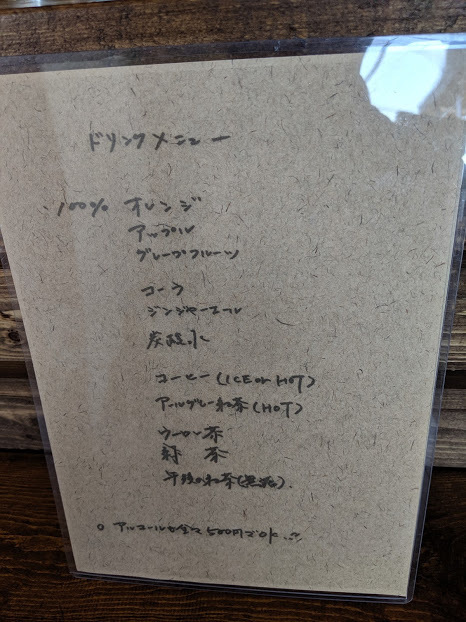 ドリンクメニュー
100% オレンジ
アップル
グレープフルーツ
コーラ
ジンジャーエール
炭酸水
コーヒー(ICE or HOT)
アールグレー紅茶(HOT)
ウーロン茶
緑茶
午後の紅茶(無糖)
○ アルコールも全て500円でOK